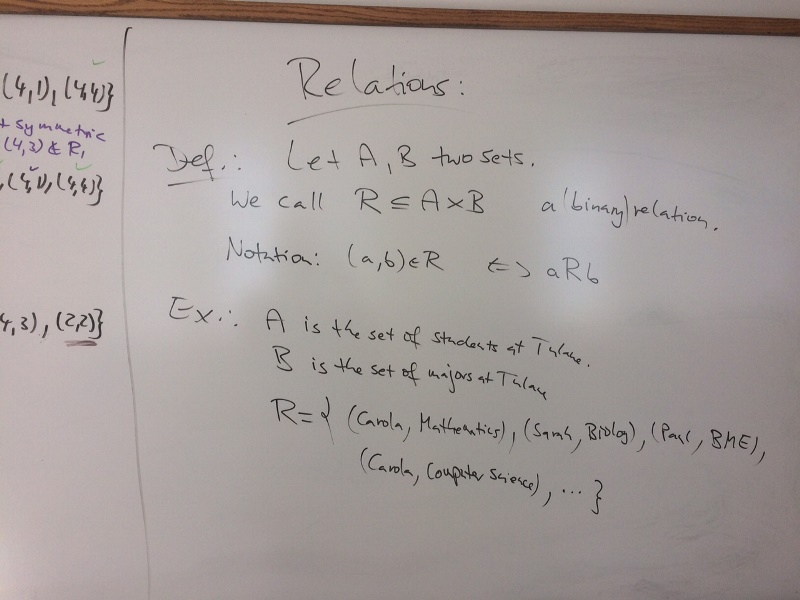 (4,1), (4,4)}
symmetric
(4,3) ∉ R,
, (4,1), (4,4)}
4,3), (2,2)}
Relations:
Def.: Let A, B two sets.
We call R ⊆ A×B a (binary) relation.
Notation: (a,b) ∈ R <=> aRb
Ex.: A is the set of students at Tulane.
B is the set of majors at Tulane
R = { (Carola, Mathematics), (Sarah, Biology), (Paul, BME),
(Carola, Computer Science), ... }